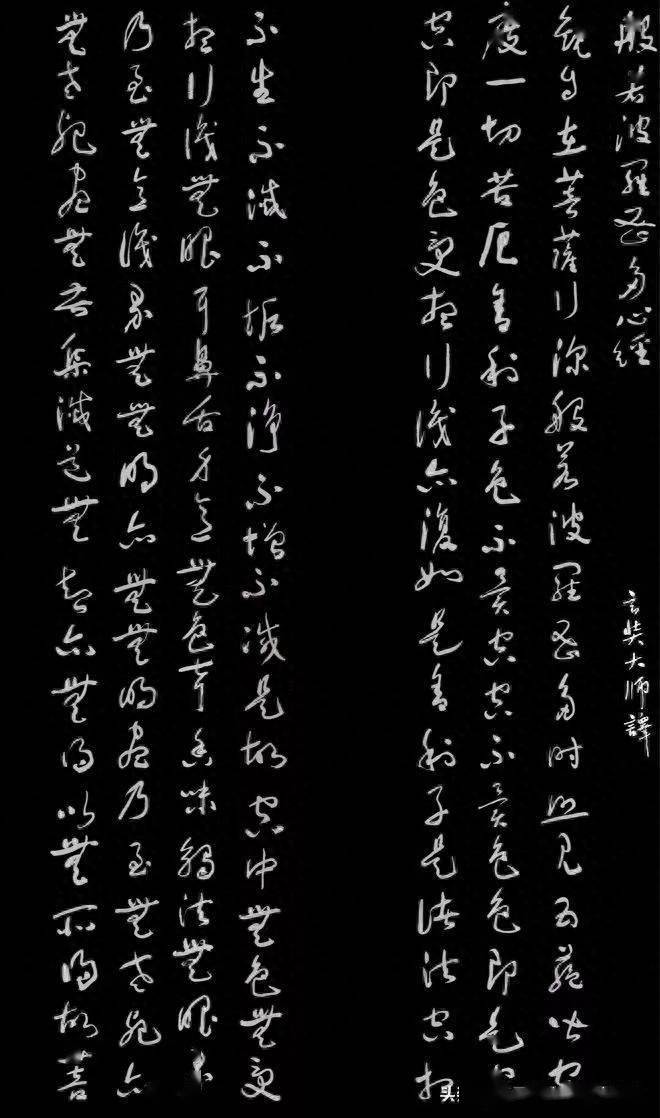 般若波羅蜜多心經
玄奘大师譯
觀自在菩薩行深般若波羅蜜多时照見五蘊皆空
度一切苦厄舍利子色不異空空不異色色即是
空即是色受想行識亦復如是舍利子是諸法空相
不生不滅不垢不淨不增不減是故空中無色無受
想行識無眼耳鼻舌身意無色聲香味觸法無眼界
乃至無意識界無無明亦無無明盡乃至無老死亦
無老死盡無苦集滅道無智亦無得以無所得故菩